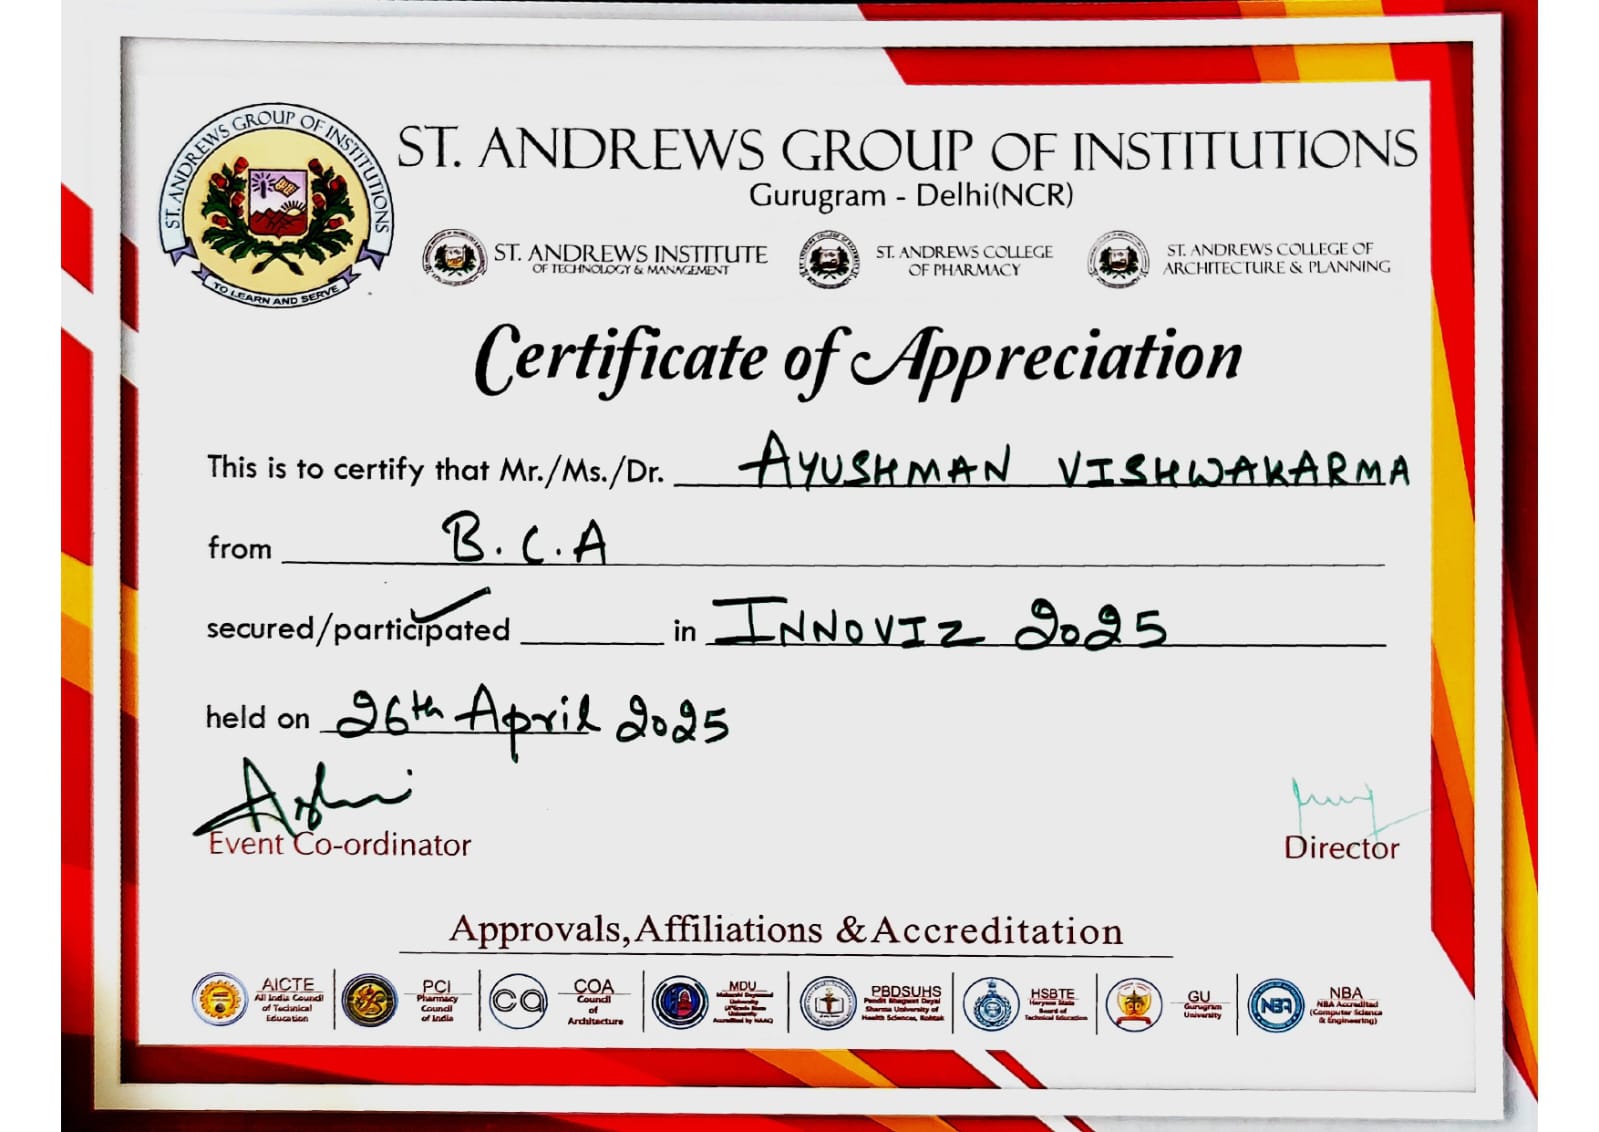 ST. ANDREWS GROUP OF INSTITUTIONS
TO LEARN AND SERVE
ST. ANDREWS GROUP OF INSTITUTIONS
Gurugram - Delhi(NCR)
ST. ANDREWS INSTITUTE
OF TECHNOLOGY & MANAGEMENT
ST. ANDREWS COLLEGE
OF PHARMACY
ST. ANDREWS COLLEGE OF
ARCHITECTURE & PLANNING
Certificate of Appreciation
This is to certify that Mr./Ms./Dr. AYUSHMAN VISHWAKARMA
from B.C.A
secured/participated in INNOVIZ 2025
held on 26th April 2025
Event Co-ordinator
Director
Approvals,Affiliations &Accreditation
AICTE
All India Council
of Technical
Education
PCI
Pharmacy
Council
of India
COA
Council
of
Architecture
MDU
Maharshi Dayanand
University
University
Accredited by NAAC)
PBDSUHS
Pandit Bhagwat Dayal
Sharma University of
Health Sciences, Rohtak
HSBTE
Haryana State
Board of
Technical Education
GU
Gurugram
University
NBA
NBA
NBA Accredited
(Computer Science
& Engineering)